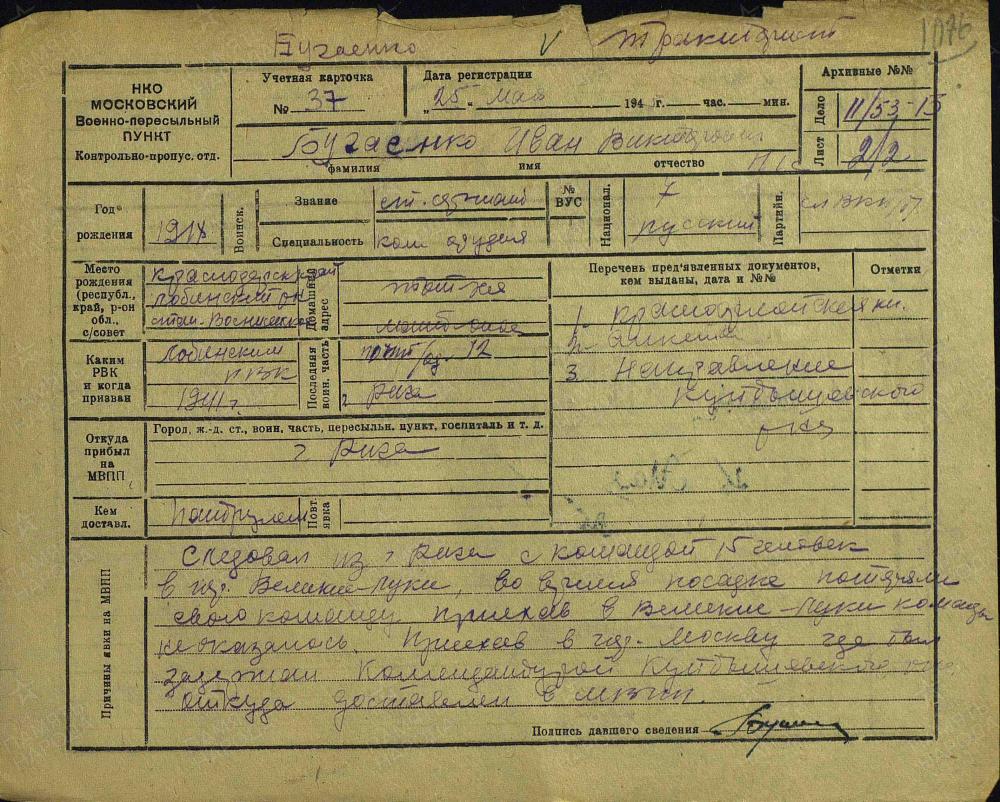 Бугаенко V
1076
НКО
МОСКОВСКИЙ
Военно-пересыльный
ПУНКТ
Контрольно-пропус. отд.
Учетная карточка
№ 37
Дата регистрации
„25“ мая 194 г. час. мин.
Архивные №№
Дело 11/53-13
Лист 212
Бугаенко Иван
фамилия имя отчество
Год
рождения
1918
Воинск.
Звание ст. сержант
Специальность ком орудия
№
ВУС
Национал.
русский
Партийн.
Место
рождения
(республ.,
край, р-он
обл.,
с/совет
Краснодарский край
Лобинский
стан.
Домашний
адрес
тот же
Каким
РВК
и когда
призван
Лобинским
РВК
1941 г.
Последняя
воин. часть
12
г Рига
Перечень пред'явленных документов,
кем выданы, дата и №№
Отметки
1. Красноармейская кн.
2.
3. Направление
Куйбышевского
Откуда
прибыл
на
МВПП
Город, ж.-д. ст., воин. часть, пересыльн. пункт, госпиталь и т. д.
г Рига
Кем
доставл.
Патрулем
Повт.
явка
Причины явки на МВПП
Следовал из г Рига с командой 15 человек
в гор. Великие-Луки, во время посадке потерял
свою команду приехав в Великие-Луки команды
не оказалось. Приехав в гор. Москву где был
задержан Комендатурой Куйбышевского
откуда доставлен в МВПП.
Подпись давшего сведения